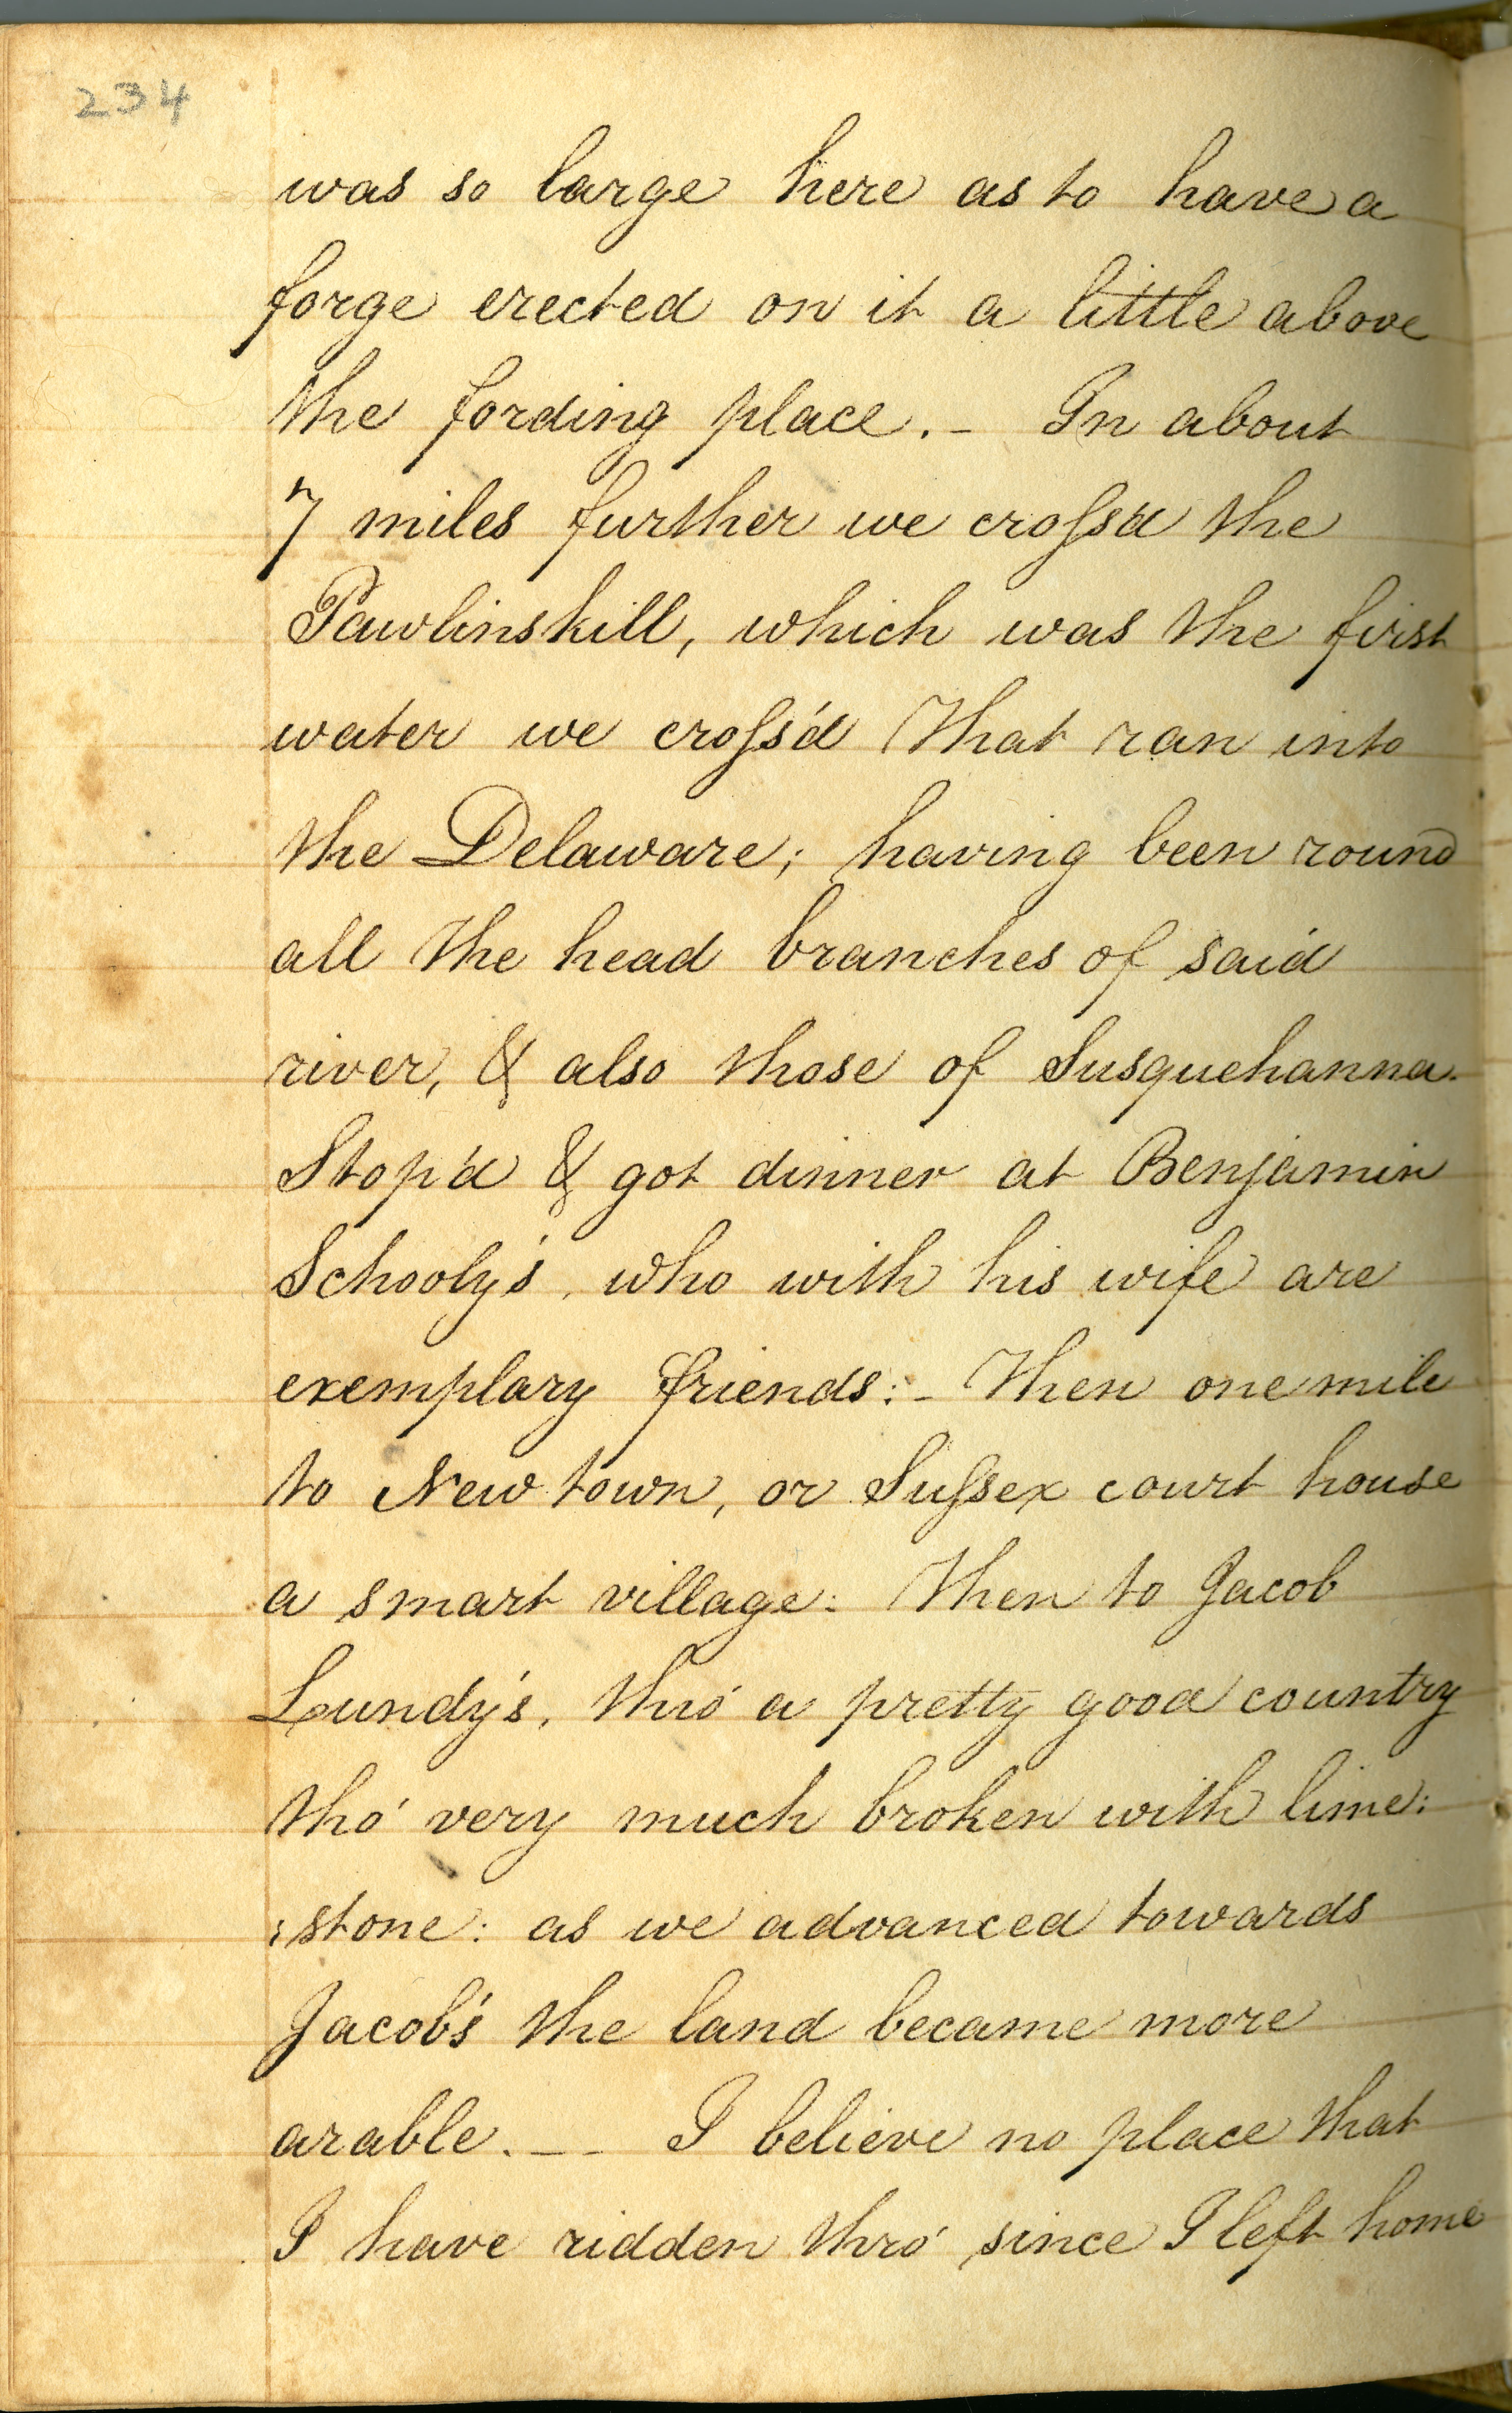 234
was so large here as to have a
forge erected on it a little above
the fording place. - In about
7 miles further we croſs'd the
Pawlinskill, which was the first
water we croſs'd that ran into
the Delaware; having been round
all the head branches of said
river, & also those of Susquehanna.
Stop'd & got dinner at Benjamin
Schooly's, who with his wife are
exemplary friends: - Then one mile
to New town, or Suſsex court house
a smart village: Then to Jacob
Lundy's, thro' a pretty good country
tho' very much broken with lime:
:stone: as we advanced towards
Jacob's the land became more
arable. -- I believe no place that
I have ridden thro' since I left home